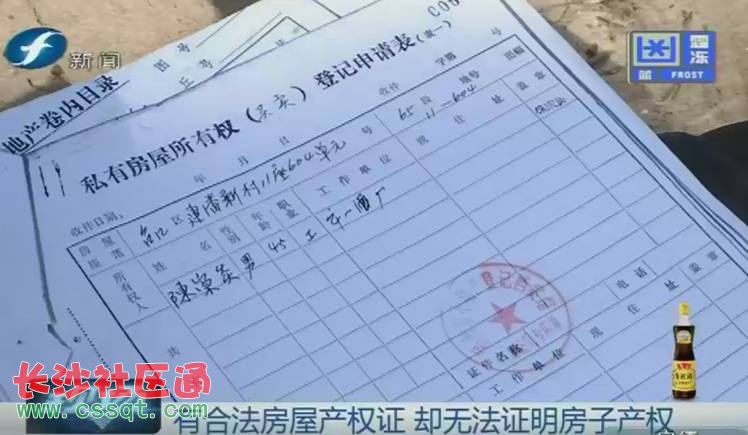 新闻
图号
丘号
C05
地产卷内目录
蓝
冻
FROST
私有房屋所有权(买卖)登记申请表(表一)
收件日期: 年 月 日
收件 字第 号
65段 地号 11-604 图幅
房屋座落 台江区 新村11座604单元
所有权人 姓名 性别 年龄 职业 工作单位 现住址 盖章
陈 男 45 工 一酒厂
共
证件名称 电话
工作单位 现住址 盖章
长沙社区通
www.cssqt.com
有合法房屋产权证 却无法证明房子产权